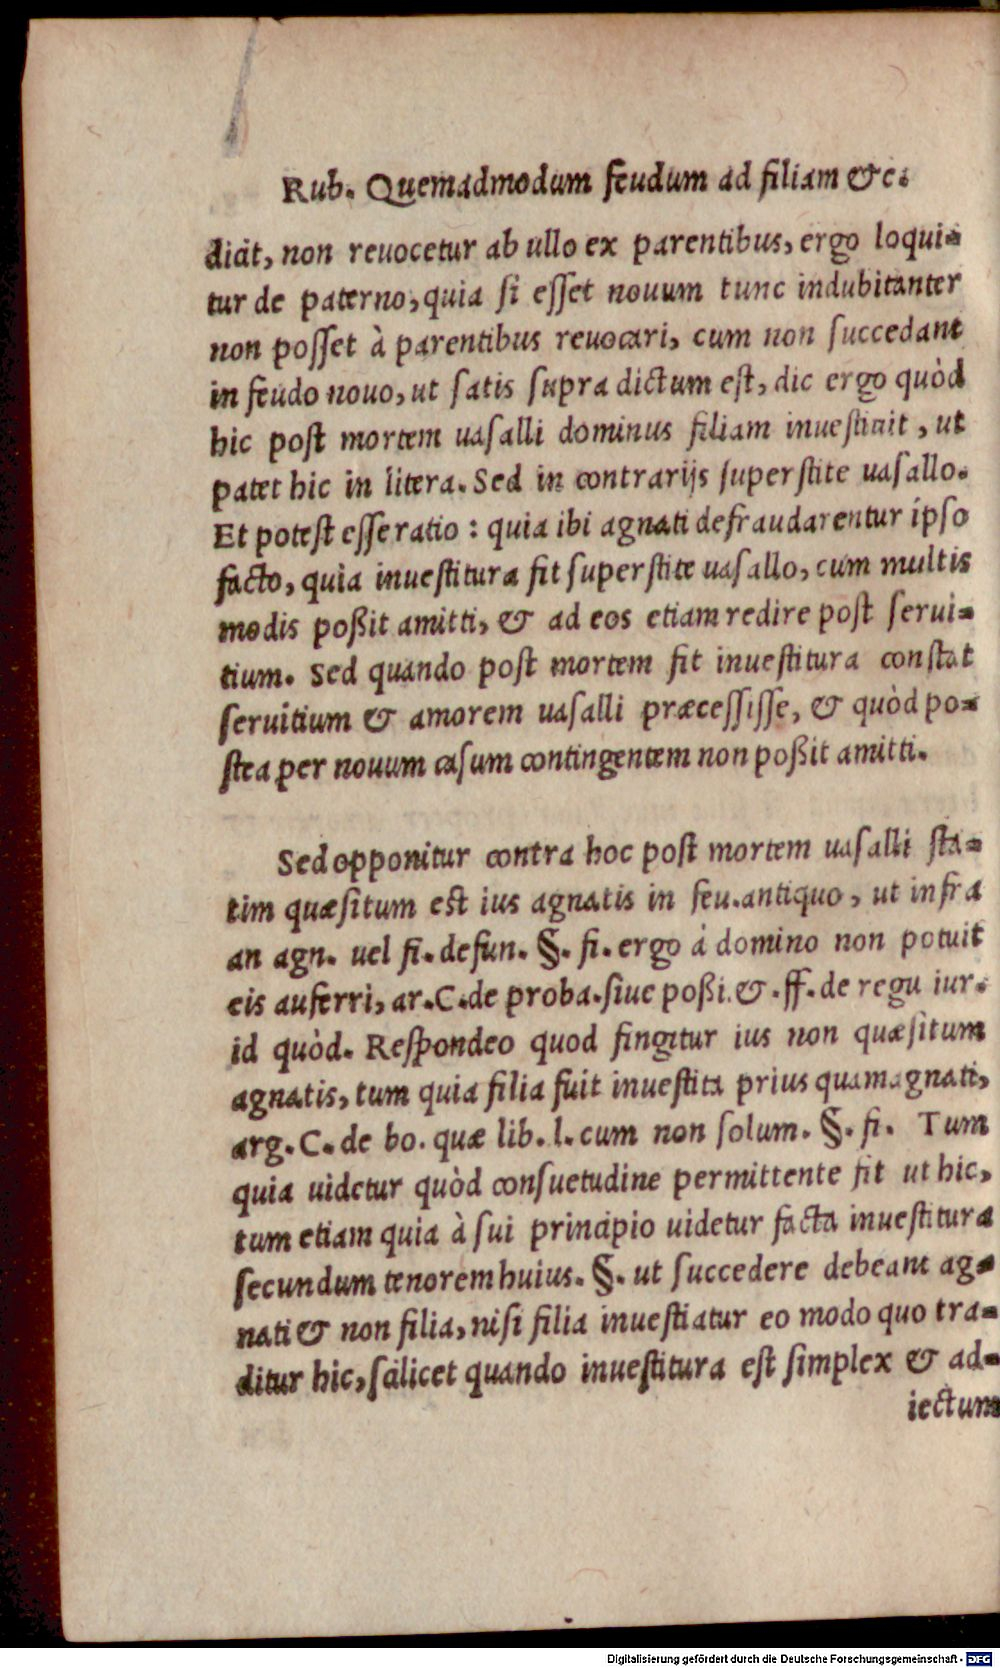 Rub. Quemadmodum feudum ad filiam &c.
diāt, non reuocetur ab ullo ex parentibus, ergo loqui-
tur de paterno, quia si esset nouum tunc indubitanter
non posset à parentibus reuocari, cum non succedant
in feudo nouo, ut satis supra dictum est, dic ergo quòd
hic post mortem uasalli dominus filiam inuestiuit, ut
patet hic in litera. Sed in contrarijs superstite uasallo.
Et potest esse ratio: quia ibi agnati defraudarentur ipso
facto, quia inuestitura fit superstite uasallo, cum multis
modis poßit amitti, & ad eos etiam redire post serui-
tium. Sed quando post mortem fit inuestitura constat
seruitium & amorem uasalli præcessisse, & quòd po-
stea per nouum casum contingentem non poßit amitti.
Sed opponitur contra hoc post mortem uasalli sta-
tim quæsitum est ius agnatis in feu. antiquo, ut infra
an agn. uel fi. defun. §. fi. ergo à domino non potuit
eis auferri, ar. C. de proba. siue poßi. &. ff. de regu iur.
id quòd. Respondeo quod fingitur ius non quæsitum
agnatis, tum quia filia fuit inuestita prius quam agnati,
arg. C. de bo. quæ lib. l. cum non solum. §. fi. Tum
quia uidetur quòd consuetudine permittente fit ut hic,
tum etiam quia à sui principio uidetur facta inuestitura
secundum tenorem huius. §. ut succedere debeant ag-
nati & non filia, nisi filia inuestiatur eo modo quo tra-
ditur hic, scilicet quando inuestitura est simplex & ad-
iectum
Digitalisierung gefördert durch die Deutsche Forschungsgemeinschaft - DFG